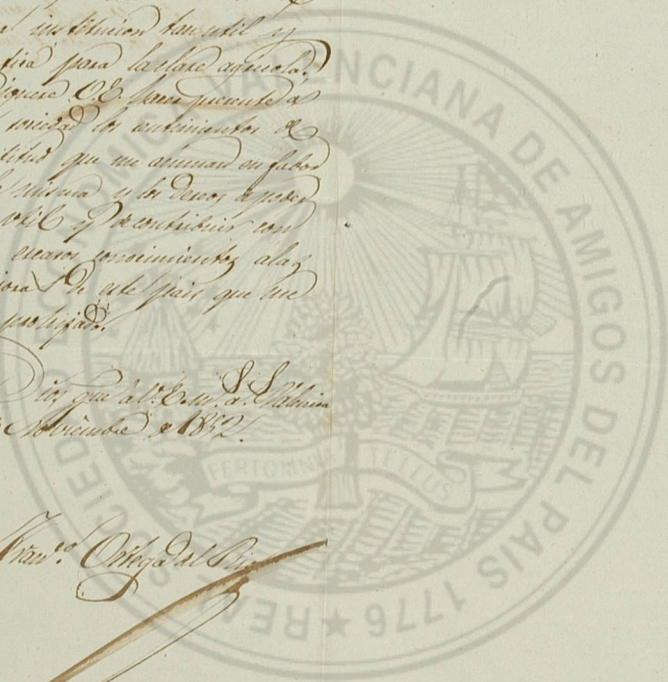 institucion tan util y
para la clase agricola.
V.E. para presente á
sociedad los sentimientos de
que me animan en fabor
misma y los deseos de poder
util y de contribuir con
escasos conocimientos a las
de este pais que me
Dios gue á V.E. m.s a.s Valencia
Noviembre de 1852.
Fran.co Ortega del Rio
REAL SOCIEDAD ECONOMICA VALENCIANA DE AMIGOS DEL PAIS 1776 ★
FERT OMNIA TELLUS